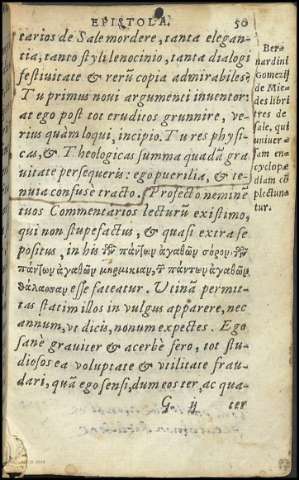 EPISTOLA. 50
tarios de Sale mordere, tanta elegan-
tia, tanto styli lenocinio, tanta dialogi
festiuitate & rerũ copia admirabiles.
Tu primus noui argumenti inuentor:
at ego post tot eruditos grunnire, ve-
rius quàm loqui, incipio. Tu res physi-
cas, & Theologicas summa quadã gra
uitate persequeris: ego puerilia, & te-
nuia confuse tracto. Profecto neminẽ
tuos Commentarios lecturũ existimo,
qui non stupefactus, & quasi extra se
positus, in his τῶν πάντων ἀγαθῶν σωρὸν, τῶν
πάντων ἀγαθῶν μυρμηκιαν, τ̀ πάντων ἀγαθῶν
θάλασσαν esse fateatur. Vtinã permit-
tas statim illos in vulgus apparere, nec
annum, vt dicis, nonum expectes. Ego
sanè grauiter & acerbè fero, tot stu-
diosos ea voluptate & vtilitate frau-
dari, quã ego sensi, dum eos ter, ac qua-
G ij ter
Ber-
nardini
Gomesij
de Mie-
des libri
tres de
sale, qui
uniuer-
sam en-
cyclopæ
diam cõ
plectun-
tur.